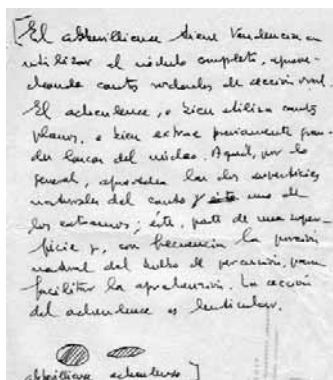 [El abbevillense tiene tendencia a
utilizar el nódulo completo, aprove-
chando cantos rodados de sección oval.
El achelense, o bien utiliza cantos
planos, o bien extrae previamente gran-
des lascas del núcleo. Aquél, por lo
general, aprovecha las dos superficies
naturales del canto y uno de
los extremos; éste, parte de una super-
ficie y, con frecuencia la porción
natural del bulbo de percusión, para
facilitar la aprehensión. La sección
del achelense es lenticular.
abbevillense achelense]